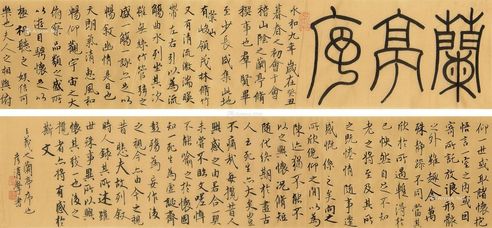 蘭亭序
永和九年歲在癸丑
暮春之初會于會
稽山陰之蘭亭脩
禊事也羣賢畢
至少長咸集此地
有崇山峻領茂林脩竹
又有清流激湍暎
帶左右引以為流
觴曲水列坐其次
雖無絲竹管弦之
盛一觴一詠亦足以
暢敘幽情是日也
天朗氣清惠風和
暢仰觀宇宙之大
俯察品類之盛所
以遊目騁懷足以
極視聽之娛信可
樂也夫人之相與俯
仰一世或取諸懷抱
寄所託放浪形骸
之外雖趣舍萬
殊靜躁不同當其
欣於所遇暫得於
己快然自足不知
老之將至及其所
之既倦情隨事遷
感慨係之矣向之
所欣俛仰之間以為
以之興懷況脩短
隨化終期於盡古
人云死生亦大矣豈
不痛哉每攬昔人
興感之由若合一契
未嘗不臨文嗟悼
不能喻之於懷固
知一死生為虛誕齊
彭殤為妄作後
之視今亦由今之視
昔悲夫故列敘
時人錄其所述雖
世殊事異所以興
懷其致一也後之
攬者亦將有感於
斯文
王羲之蘭亭序也